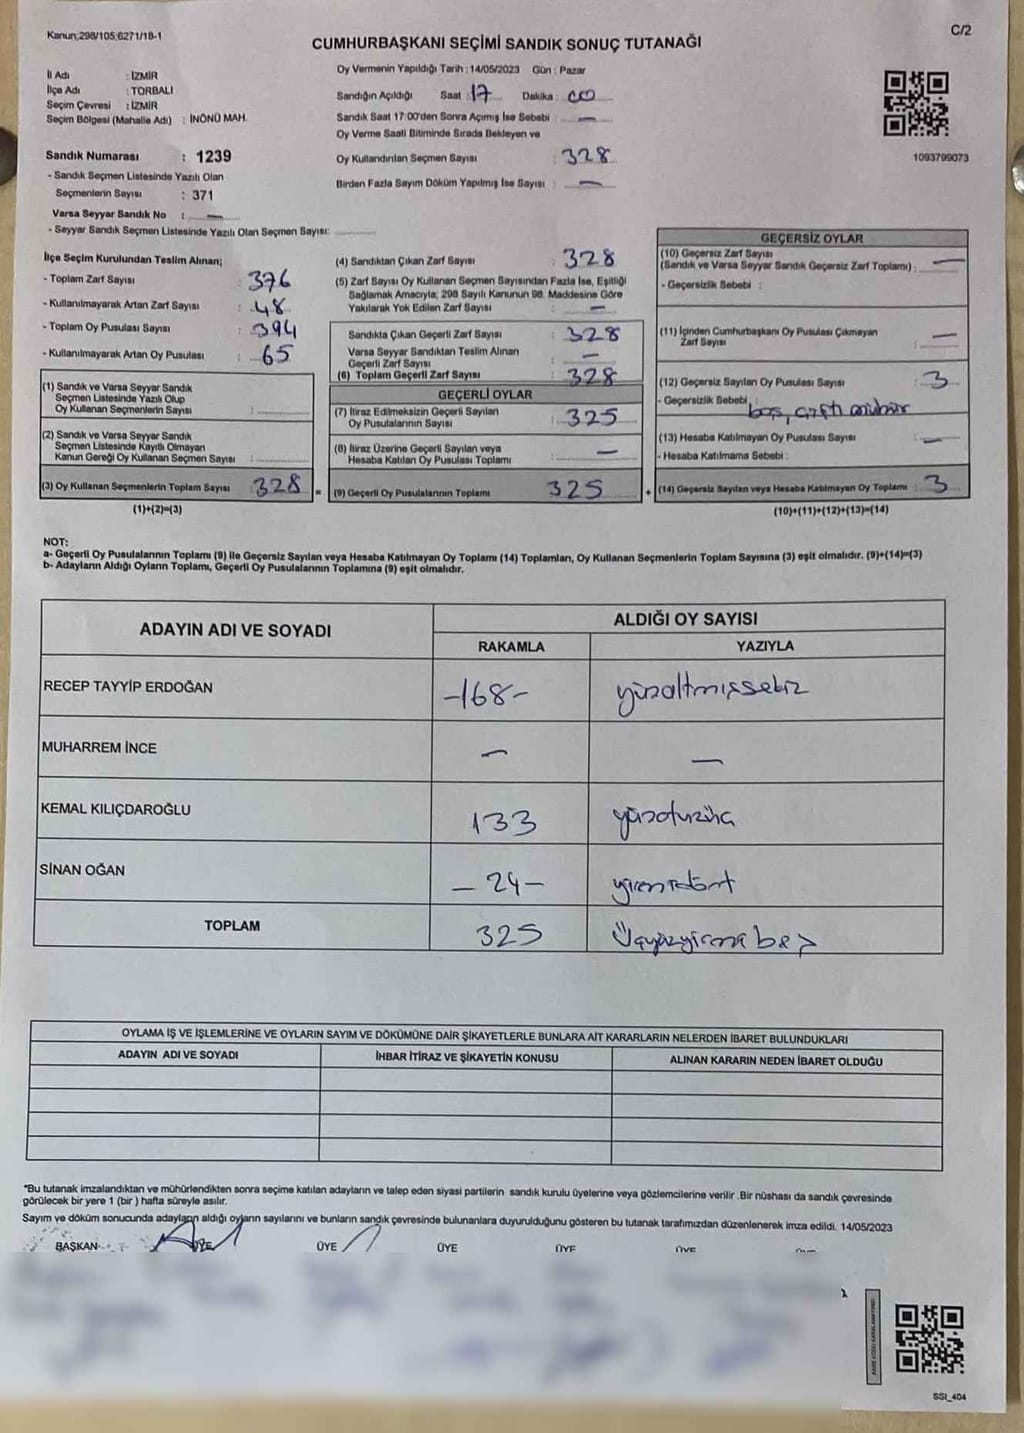 Kanun;298/105,6271/18-1
C/2
CUMHURBAŞKANI SEÇİMİ SANDIK SONUÇ TUTANAĞI
İl Adı : İZMİR
İlçe Adı : TORBALI
Seçim Çevresi : İZMİR
Seçim Bölgesi (Mahalle Adı) : İNÖNÜ MAH.
Oy Vermenin Yapıldığı Tarih : 14/05/2023 Gün : Pazar
Sandığın Açıldığı Saat : 17 Dakika : 00
Sandık Saat 17:00'den Sonra Açımış İse Sebebi : —
Oy Verme Saati Bitiminde Sırada Bekleyen ve
Oy Kullandırılan Seçmen Sayısı : 328
Birden Fazla Sayım Döküm Yapılmış İse Sayısı : —
1093799073
Sandık Numarası : 1239
- Sandık Seçmen Listesinde Yazılı Olan
Seçmenlerin Sayısı : 371
Varsa Seyyar Sandık No : —
- Seyyar Sandık Seçmen Listesinde Yazılı Olan Seçmen Sayısı:
İlçe Seçim Kurulundan Teslim Alınan;
- Toplam Zarf Sayısı : 376
- Kullanılmayarak Artan Zarf Sayısı : 48
- Toplam Oy Pusulası Sayısı : 394
- Kullanılmayarak Artan Oy Pusulası : 65
(1) Sandık ve Varsa Seyyar Sandık
Seçmen Listesinde Yazılı Olup
Oy Kullanan Seçmenlerin Sayısı :
(2) Sandık ve Varsa Seyyar Sandık
Seçmen Listesinde Kayıtlı Olmayan
Kanun Gereği Oy Kullanan Seçmen Sayısı :
(3) Oy Kullanan Seçmenlerin Toplam Sayısı 328 =
(1)+(2)=(3)
(4) Sandıktan Çıkan Zarf Sayısı : 328
(5) Zarf Sayısı Oy Kullanan Seçmen Sayısından Fazla İse, Eşitliği
Sağlamak Amacıyla; 298 Sayılı Kanunun 98. Maddesine Göre
Yakılarak Yok Edilen Zarf Sayısı : —
Sandıkta Çıkan Geçerli Zarf Sayısı : 328
Varsa Seyyar Sandıktan Teslim Alınan
Geçerli Zarf Sayısı : —
(6) Toplam Geçerli Zarf Sayısı : 328
GEÇERLİ OYLAR
(7) İtiraz Edilmeksizin Geçerli Sayılan
Oy Pusulalarının Sayısı : 325
(8) İtiraz Üzerine Geçerli Sayılan veya
Hesaba Katılan Oy Pusulası Toplamı : —
(9) Geçerli Oy Pusulalarının Toplamı 325 +
GEÇERSİZ OYLAR
(10) Geçersiz Zarf Sayısı
(Sandık ve Varsa Seyyar Sandık Geçersiz Zarf Toplamı) : —
- Geçersizlik Sebebi :
(11) İçinden Cumhurbaşkanı Oy Pusulası Çıkmayan
Zarf Sayısı : —
(12) Geçersiz Sayılan Oy Pusulası Sayısı : 3
- Geçersizlik Sebebi : boş, çift mühür
(13) Hesaba Katılmayan Oy Pusulası Sayısı : —
- Hesaba Katılmama Sebebi :
(14) Geçersiz Sayılan veya Hesaba Katılmayan Oy Toplamı : 3
(10)+(11)+(12)+(13)=(14)
NOT:
a- Geçerli Oy Pusulalarının Toplamı (9) ile Geçersiz Sayılan veya Hesaba Katılmayan Oy Toplamı (14) Toplamları, Oy Kullanan Seçmenlerin Toplam Sayısına (3) eşit olmalıdır. (9)+(14)=(3)
b- Adayların Aldığı Oyların Toplamı, Geçerli Oy Pusulalarının Toplamına (9) eşit olmalıdır.
ADAYIN ADI VE SOYADI
ALDIĞI OY SAYISI
RAKAMLA YAZIYLA
RECEP TAYYİP ERDOĞAN -168- yüzaltmışsekiz
MUHARREM İNCE — —
KEMAL KILIÇDAROĞLU 133 yüzotuzüç
SİNAN OĞAN -24- yirmidört
TOPLAM 325 Üçyüzyirmi beş
OYLAMA İŞ VE İŞLEMLERİNE VE OYLARIN SAYIM VE DÖKÜMÜNE DAİR ŞİKAYETLERLE BUNLARA AİT KARARLARIN NELERDEN İBARET BULUNDUKLARI
ADAYIN ADI VE SOYADI İHBAR İTİRAZ VE ŞİKAYETİN KONUSU ALINAN KARARIN NEDEN İBARET OLDUĞU
"Bu tutanak imzalandıktan ve mühürlendikten sonra seçime katılan adayların ve talep eden siyasi partilerin sandık kurulu üyelerine veya gözlemcilerine verilir .Bir nüshası da sandık çevresinde
görülecek bir yere 1 (bir ) hafta süreyle asılır.
Sayım ve döküm sonucunda adayların aldığı oyların sayılarını ve bunların sandık çevresinde bulunanlara duyurulduğunu gösteren bu tutanak tarafımızdan düzenlenerek imza edildi. 14/05/2023
BAŞKAN ÜYE ÜYE ÜYE ÜYE ÜYE
SSI_404